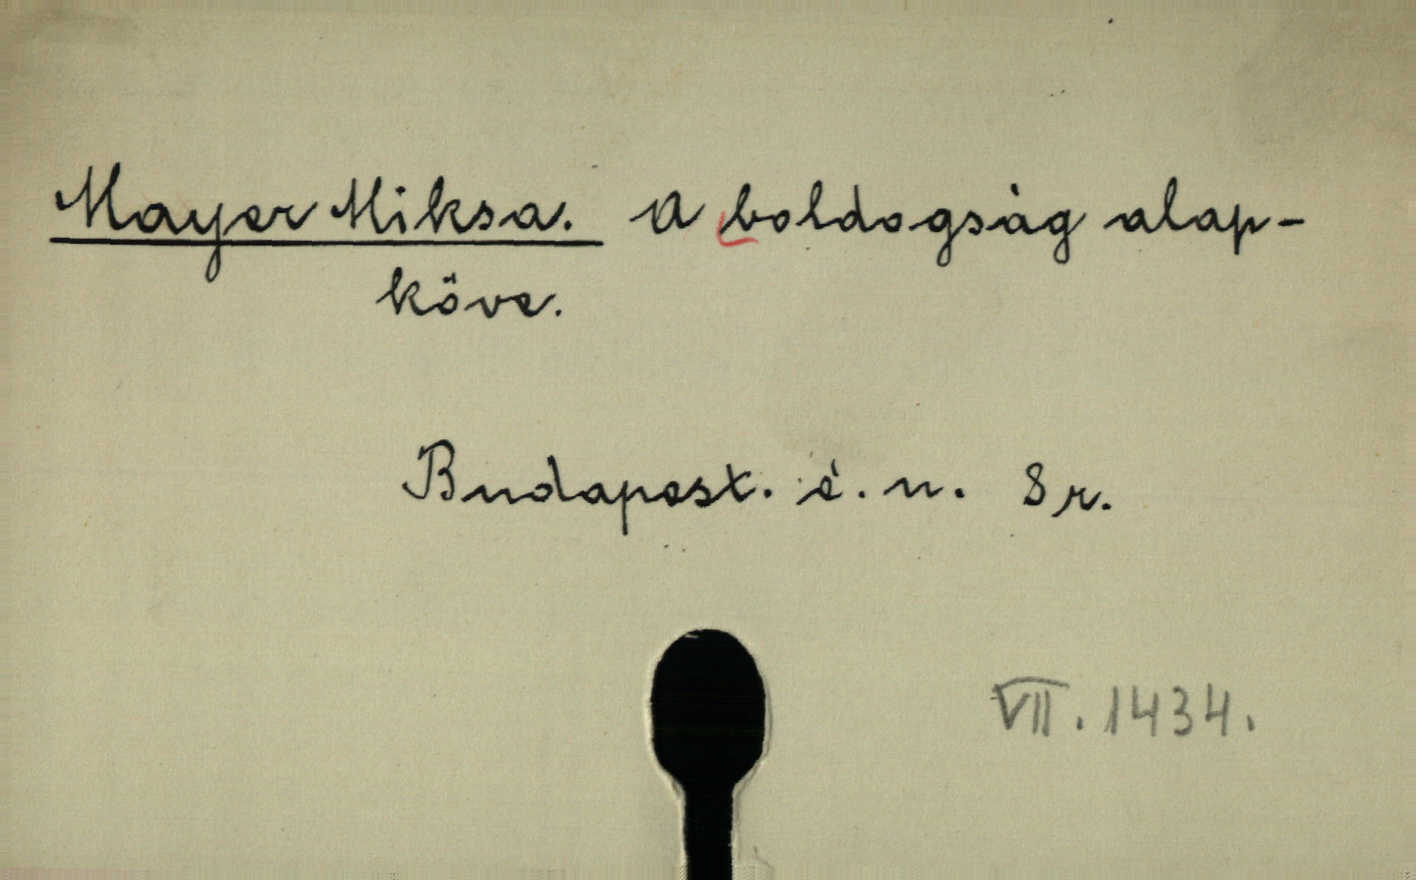 Mayer Miksa. A boldogság alap-
köve.
Budapest. é. n. 8 r.
VII. 1434.